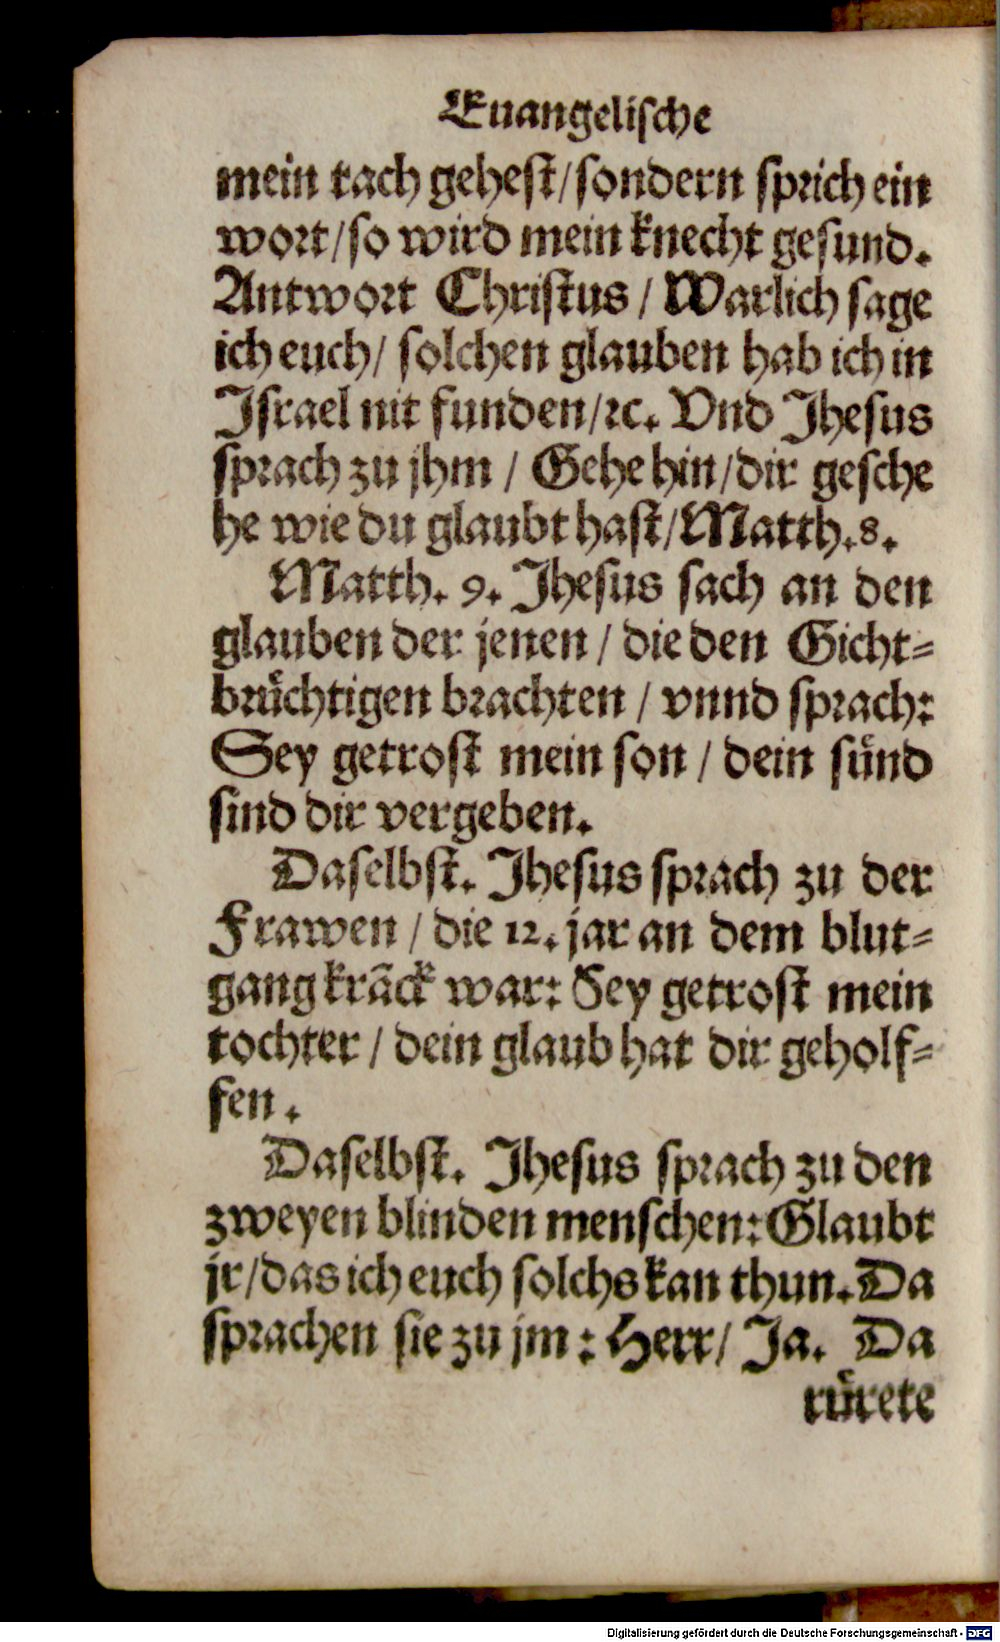 Euangelische
mein tach gehest/sondern sprich ein
wort/so wird mein knecht gesund.
Antwort Christus / Warlich sage
ich euch/ solchen glauben hab ich in
Israel nit funden/ꝛc. Vnd Jhesus
sprach zu jhm / Gehe hin/dir gesche
he wie du glaubt hast/Matth.8.
Matth. 9. Jhesus sach an den
glauben der jenen / die den Gicht-
bruͤchtigen brachten / vnnd sprach:
Sey getrost mein son / dein suͤnd
sind dir vergeben.
Daselbst. Jhesus sprach zu der
Frawen / die 12. jar an dem blut-
gang krãck war: Sey getrost mein
tochter / dein glaub hat dir geholf-
fen.
Daselbst. Jhesus sprach zu den
zweyen blinden menschen: Glaubt
jr/das ich euch solchs kan thun. Da
sprachen sie zu jm : Herr/ Ja. Da
ruͤrete
Digitalisierung gefördert durch die Deutsche Forschungsgemeinschaft - DFG